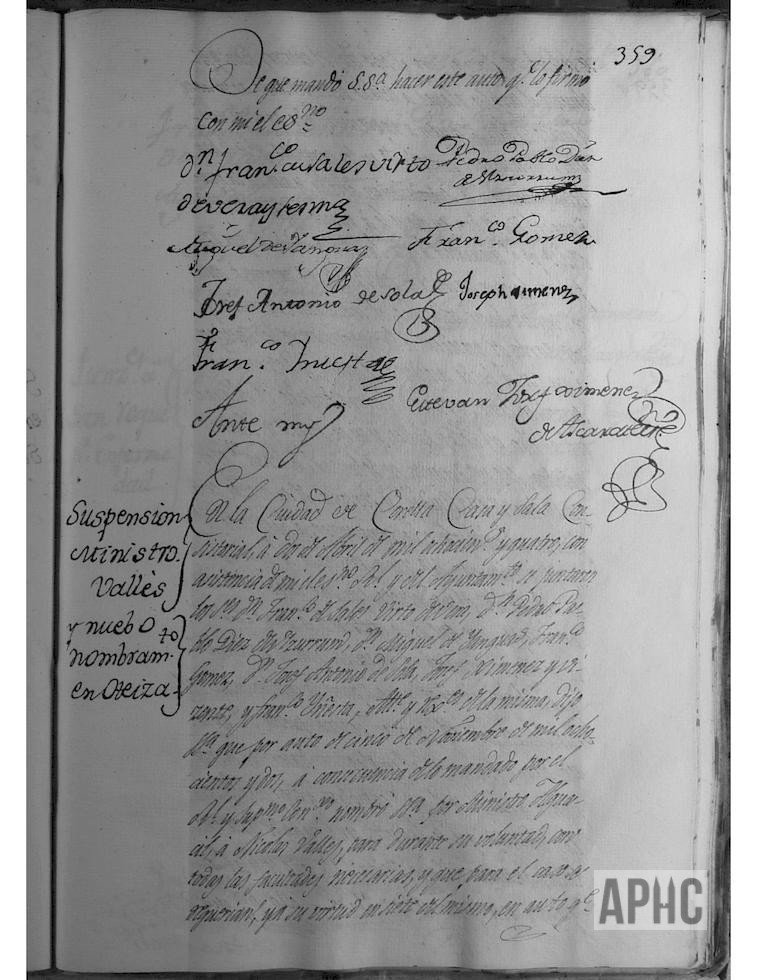 359
De que mandó S.Sª. hacer este auto q.e lo firmó
con mi el es.no
D.n fran.co de sales virto
Pedro Pablo Diez
de Uzurrun
de vera y
Miguel de
Fran.co Gomez
Josef Antonio de sola
Joseph ximenez
Fran.co
Ante my
Estevan Josef ximenez
de Ascarate
Suspension
Ministro.
Vallès
y nuebo
nombram.to
en Oteiza.
En la Ciudad de Corella Casa y Sala Con-
sistorial, à dos de Abril de mil ochocien.s y quatro, con
asistencia de mi el es.no R.l y del Ayuntam.to se juntaron
los S.res D.n Fran.co de Sales Virto de Vera, D.n Pedro Pa-
blo Diez de Uzurrun, D.n Miguel de Fran.co
Gomez, D.n Josef Antonio de Sola, Josef Ximenez y
y Fran.co Alc.e y Rex.es de la misma, dijo
S.Sª que por auto de cinco de Noviembre de mil ocho-
cientos y dos, à consecuencia de lo mandado por el
R.l y Sup.mo Con.jo nombró S.Sª por Ministro Algua-
cil, à Nicolas Valles, para durante su voluntad, con
todas las facultades necesarias, y que para el caso se
requerian, y à su virtud en siete del mismo, en auto q.e
APHC